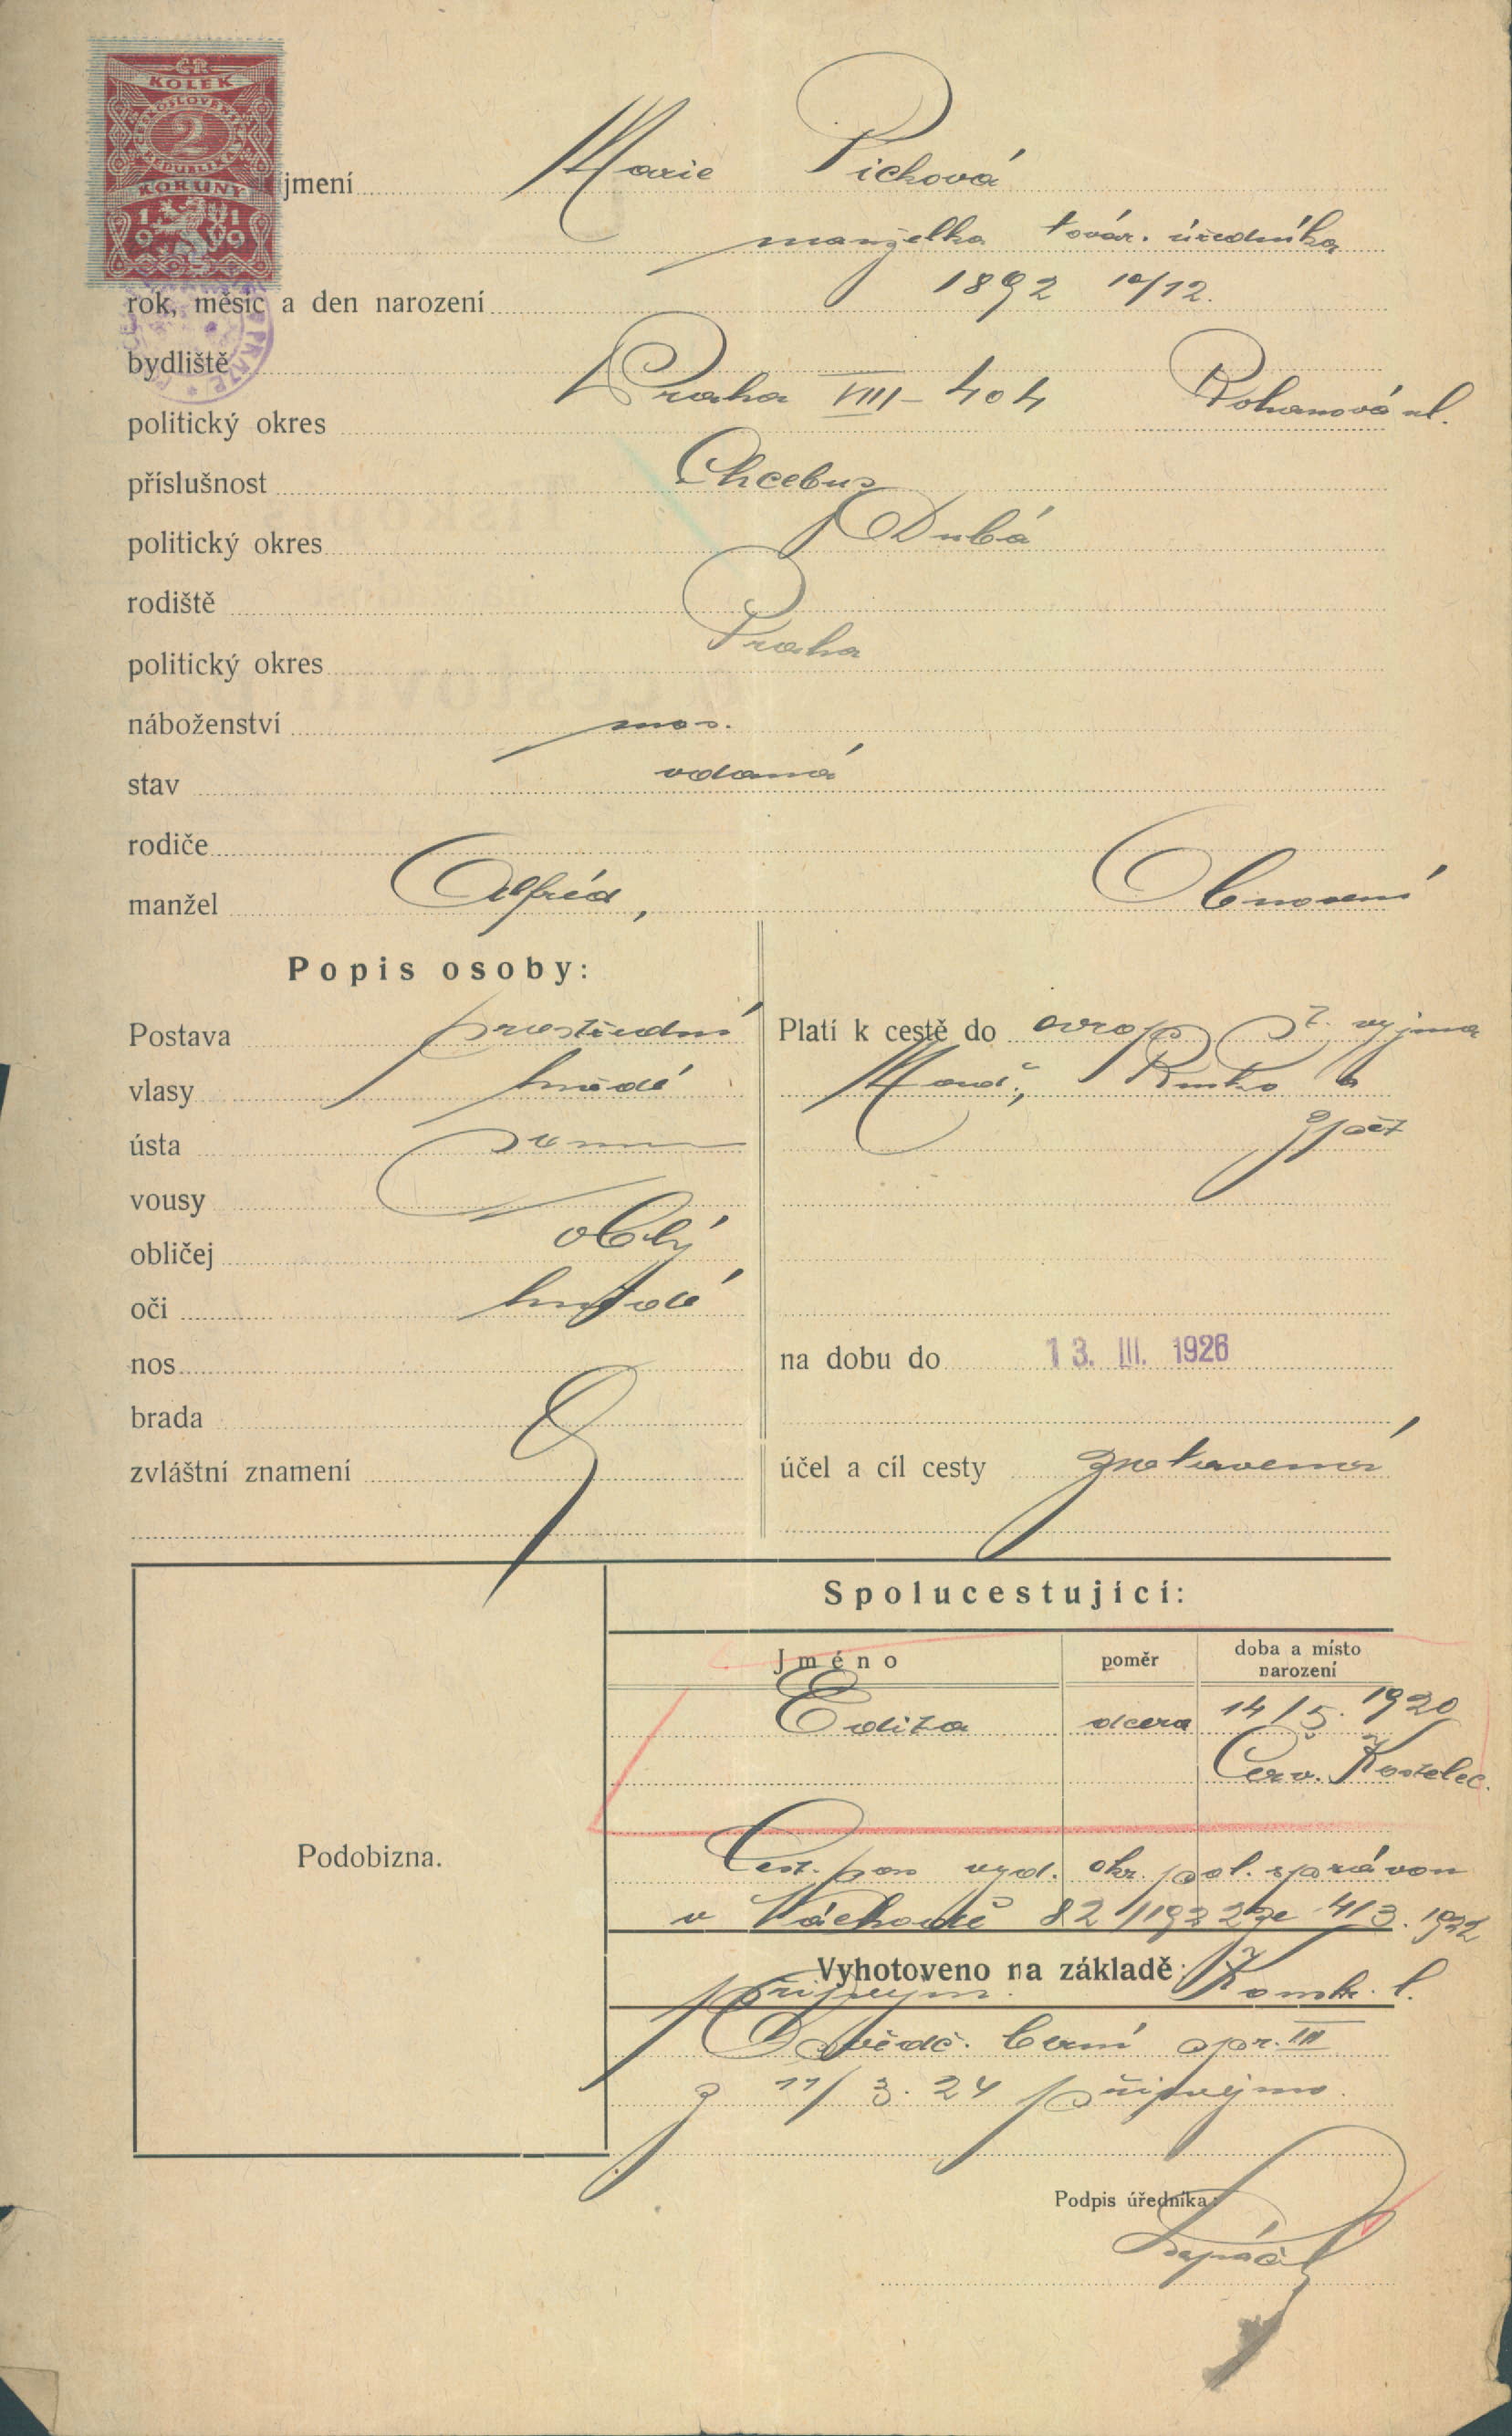 ČR
KOLEK
ČESKOSLOVENSKÁ
2
REPUBLIKA
KORUNY
1919
jmení Marie Picková
manželka továr. úředníka
rok, měsíc a den narození 1892 10/12.
bydliště
Praha VIII - 404 Rohanová ul.
politický okres
příslušnost Chcebuz
politický okres Dubá
rodiště
Praha
politický okres
náboženství mos.
stav vdaná
rodiče
manžel Alfréd, Obnovení
Popis osoby:
Postava prostřední
vlasy hnědé
ústa
vousy
obličej oblý
oči hnědé
nos
brada
zvláštní znamení
Platí k cestě do evrop. st. vyjma
Maď., Rusko a
zpět
na dobu do 13. III. 1926
účel a cíl cesty zotavení
Spolucestující:
Jméno poměr doba a místo narození
Edita dcera 14/5. 1920
Červ. Kostelec.
Podobizna.
Cest. pas vyd. okr. pol. správou
v Náchodě 82/1922 ze 4/3. 1922
Vyhotoveno na základě:
připojen. Konsk. l.
Osvědč. berní spr. III
z 11/3. 24 připojeno.
Podpis úředníka: